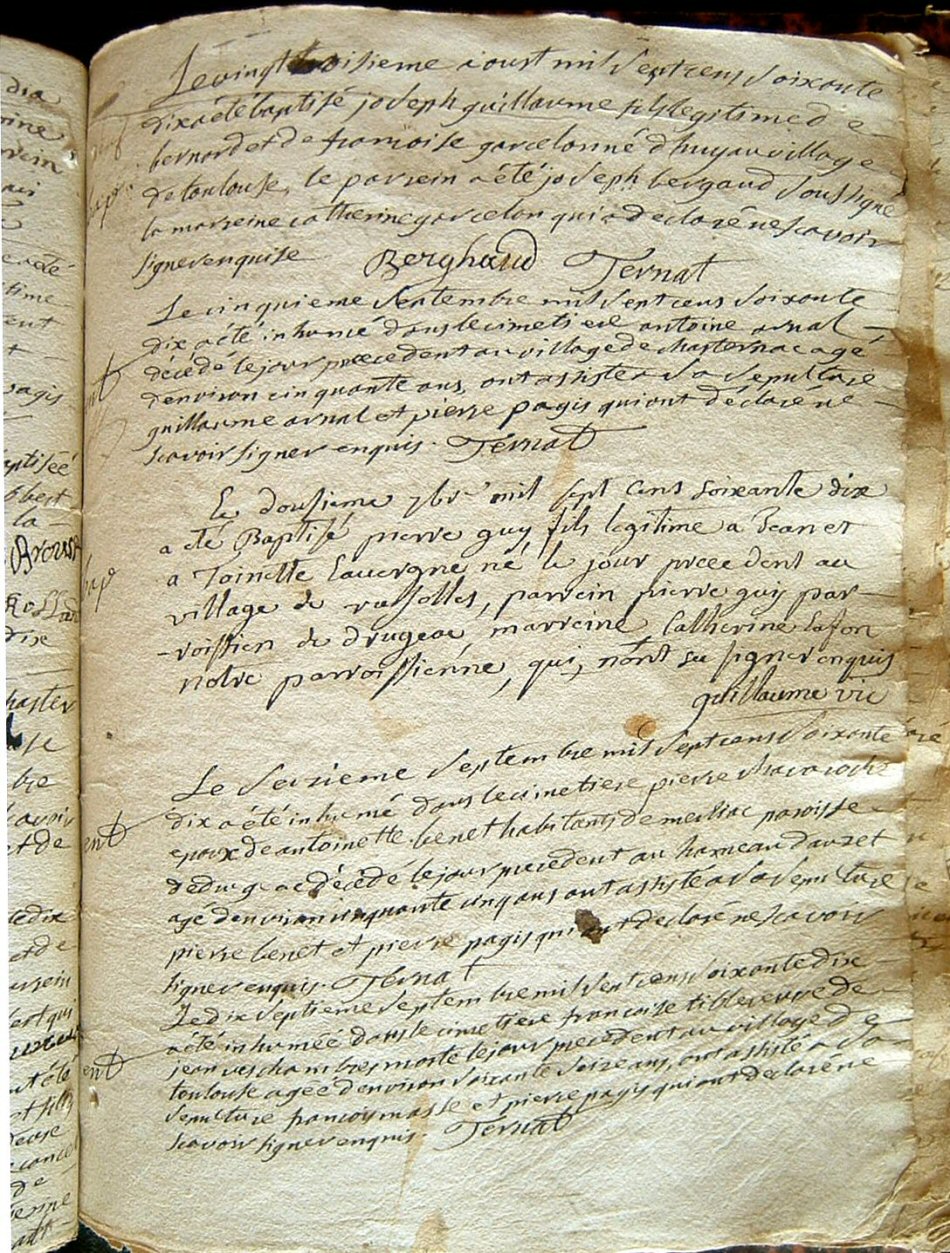 Le vingt troisieme aoust mil sept cens soixante
dix a été baptisé joseph guillaume fils legitime de
bernard et de françoise garcelon né d'huy au village
de toulouse, le parrein a été joseph bergaud soussigné
la marreine catherine garcelon qui a declaré ne scavoir
signer enquise Berghaud Ternat
Le cinquieme septembre mil sept cens soixante
dix a été inhumé dans le cimetiere antoine arnal
décédé le jour précédent au village de chasternac agé
denviron cinquante ans, ont assisté a sa sepulture
guillaume arnal et pierre pagis qui ont declaré ne
scavoir signer enquis. Ternat
Le dousieme 7bre mil sept cens soixante dix
a eté Baptisé pierre guy fils legitime a Jean et
a Toinette Lauvergne né le jour precedent au
village de parrein pierre guy par-
-roissien de drugeac marreine Catherine Lafon
notre parroissienne, qui, n'ont su signer enquis
guillaume vic
Le seizieme septembre mil sept cens soixante
dix a été inhumé dans le cimetiere pierre chavaroche
epoux de antoinette benet habitants de meilhac paroisse
de drugeac décédé le jour précédent au hameau dauzet
agé denviron cinquante cinq ans ont assisté a sa sepulture
pierre benet et pierre pagis qui ont declaré ne scavoir
signer enquis. Ternat
Le dix septieme septembre mil sept cens soixante dix
a été inhumée dans le cimetiere françoise veuve de
jean veschambres morte le jour précédent au village de
toulouse agée denviron soixante seize ans, ont assisté a sa
sepulture françois masse et pierre pagis qui ont declaré ne
scavoir signer enquis. Ternat